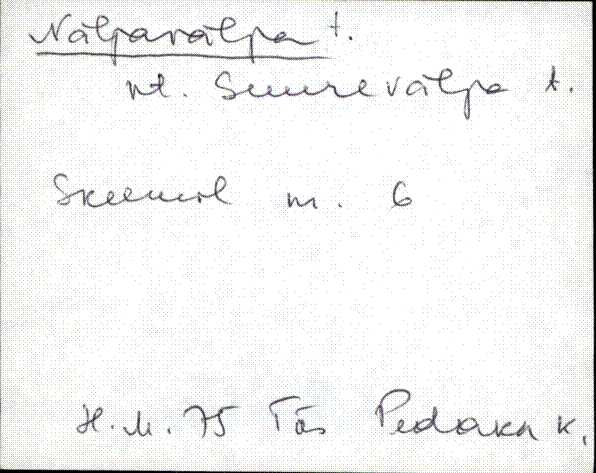 Näljavälja t.
vt. Suurevälja t.
Skeemil m. 6
H.M. 75 Tõs Pedaka k.